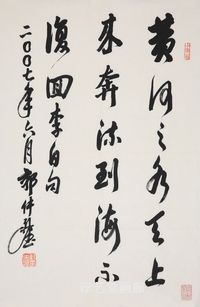 黄河之水天上
来奔流到海不
復回李白句
二〇〇七年六月